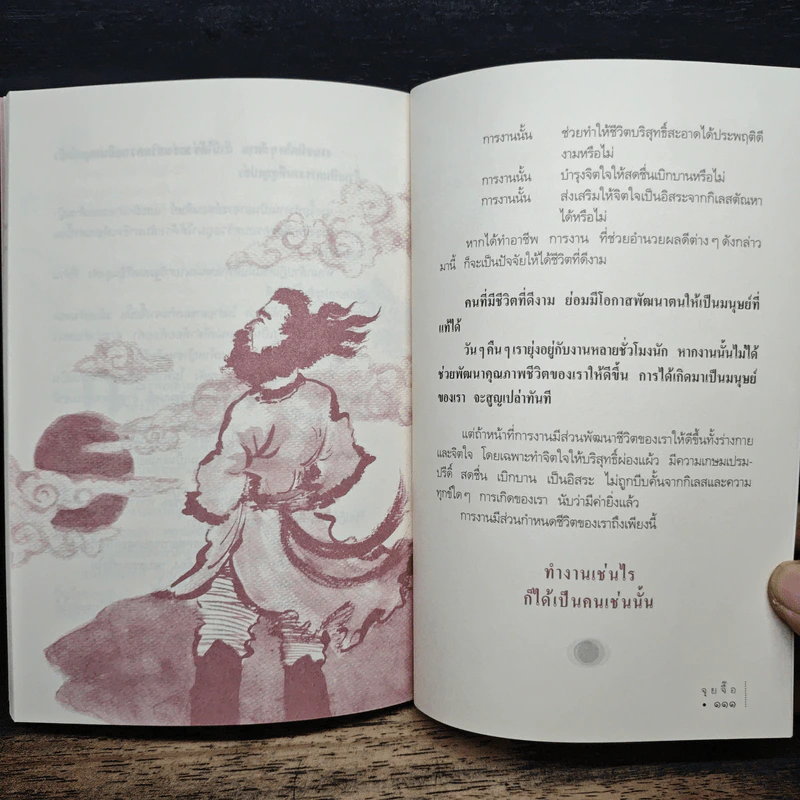 การงานนั้น ช่วยทำให้ชีวิตบริสุทธิ์สะอาดได้ประพฤติดี
งามหรือไม่
การงานนั้น บำรุงจิตใจให้สดชื่นเบิกบานหรือไม่
การงานนั้น ส่งเสริมให้จิตใจเป็นอิสระจากกิเลสตัณหา
ได้หรือไม่
หากได้ทำอาชีพ การงาน ที่ช่วยอำนวยผลดีต่างๆดังกล่าว
มานี้ ก็จะเป็นปัจจัยให้ได้ชีวิตที่ดีงาม
คนที่มีชีวิตที่ดีงาม ย่อมมีโอกาสพัฒนาตนให้เป็นมนุษย์ที่
แท้ได้
วันๆคืนๆเรายุ่งอยู่กับงานหลายชั่วโมงนัก หากงานนั้นไม่ได้
ช่วยพัฒนาคุณภาพชีวิตของเราให้ดีขึ้น การได้เกิดมาเป็นมนุษย์
ของเรา จะสูญเปล่าทันที
แต่ถ้าหน้าที่การงานมีส่วนพัฒนาชีวิตของเราให้ดีขึ้นทั้งร่างกาย
และจิตใจ โดยเฉพาะทำจิตใจให้บริสุทธิ์ผ่องแผ้ว มีความเกษมเปรม-
ปรีดิ์ สดชื่น เบิกบาน เป็นอิสระ ไม่ถูกบีบคั้นจากกิเลสและความ
ทุกข์ใดๆ การเกิดของเรา นับว่ามีค่ายิ่งแล้ว
การงานมีส่วนกำหนดชีวิตของเราถึงเพียงนี้
ทำงานเช่นไร
ก็ได้เป็นคนเช่นนั้น
จุยจื๊อ
• ๑๑๑